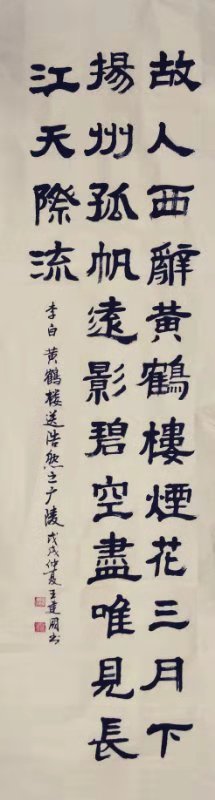 故人西辭黄鶴樓煙花三月下
揚州孤帆遠影碧空盡唯見長
江天際流
李白黄鶴楼送浩然之广陵戊戌仲夏王建国书